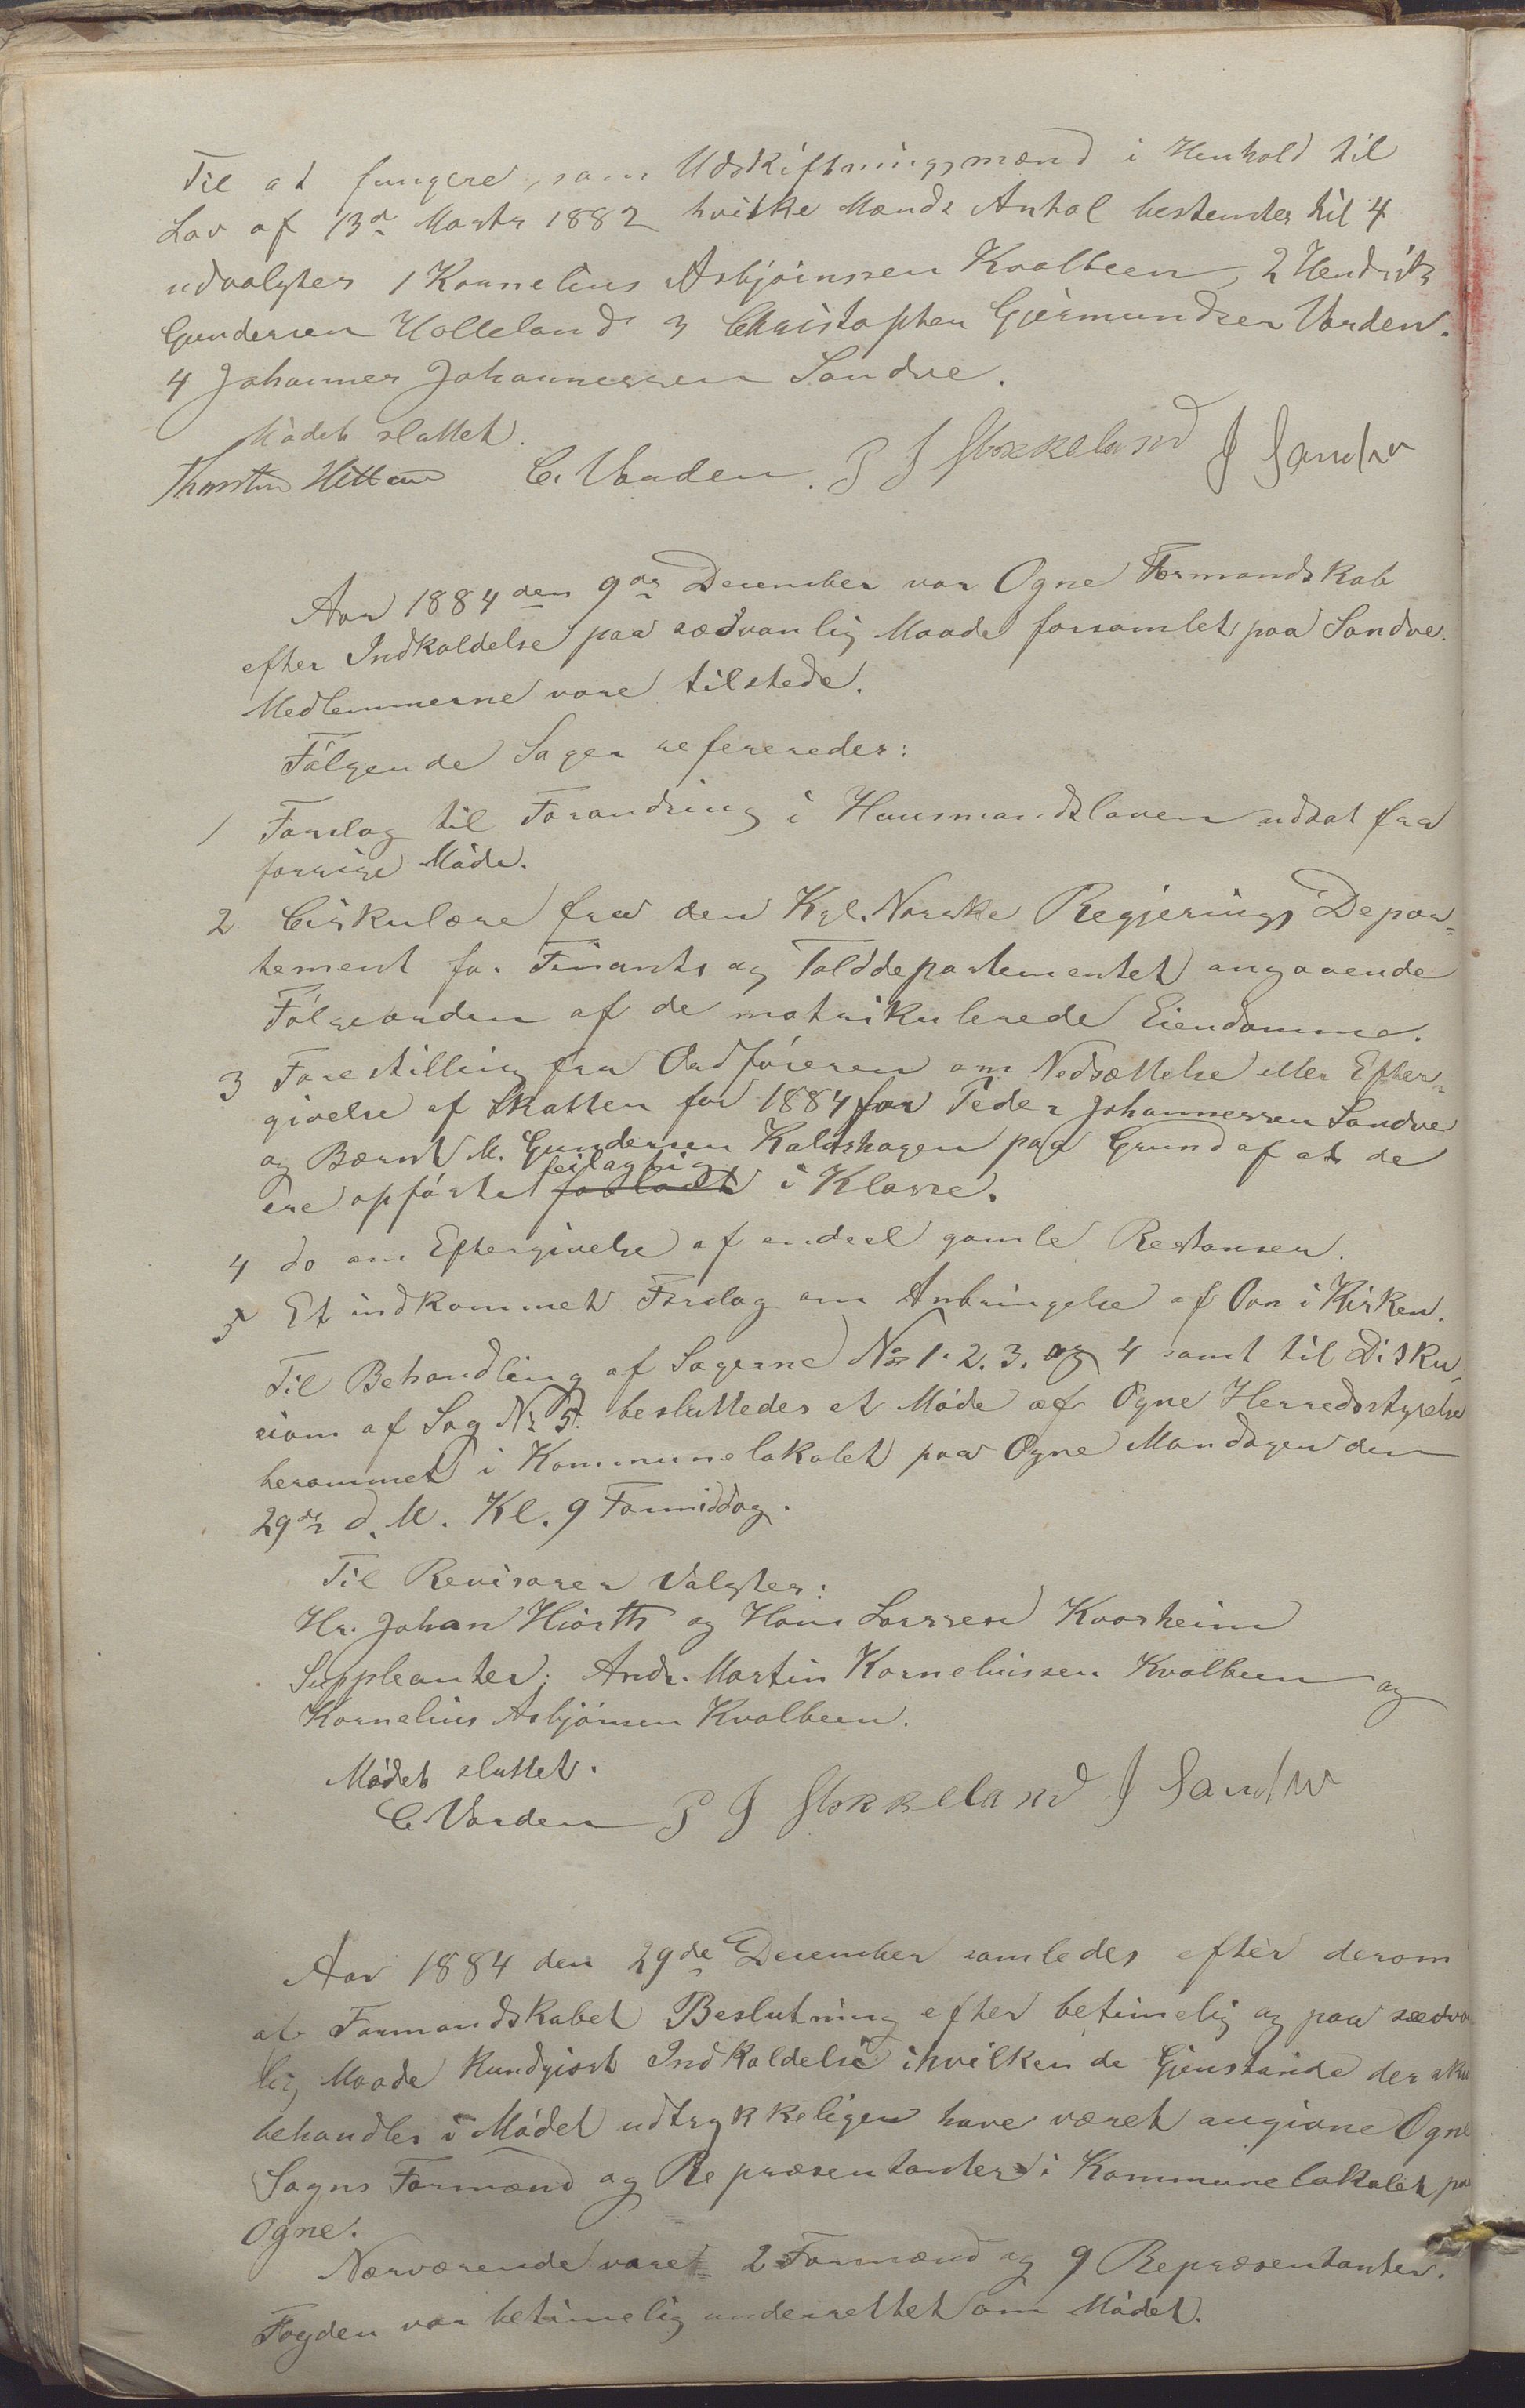 Til at fungere, som Udskiftningsmænd i Henhold til
Lov af 13de Marts 1882 hvilke Mænds Antal bestemtes til 4
udvalgtes 1 Kornelius Asbjörnsen Kvalbeen, 2 Hendrik
Gundersen Holleland 3 Christopher Gjermundsen Varden.
4 Johannes Johannessen Sandve.
Mödet sluttet.
Thorsten Hetland C. Varden. P J Stokkeland J Sandve
Aar 1884 den 9de December var Ogne Formandskab
efter Indkaldelse paa sædvanlig Maade forsamlet paa Sandve.
Medlemmerne vare tilstede.
Fölgende Sager refereredes:
1 Forslag til Forandring i Huusmandsloven udsat fra
forrige Möde.
2 Cirkulære fra den Kgl. Norske Regjerings Depar-
tement for Finants og Tolddepartementet angaaende
Fölgeorden af de matrikulerede Eiendomme.
3 Forestilling fra Ordföreren om Nedsættelse eller Efter-
givelse af Skatten for 1884 for Peder Johannessen Sandve
og Bernt M. Gundersen Kaldshagen paa Grund af at de
ere opförte feilagtig i Klasse.
4 do om Eftergivelse af endeel gamle Restanser.
5 Et indkommet Forslag om Anbringelse af Ovn i Kirken.
Til Behandling af Sagerne No 1. 2. 3. og 4 samt til Disku-
sion af Sag Nr 5. besluttedes et Möde af Ogne Herredsstyrelse
berammet i Kommunelokalet paa Ogne Mandagen den
29de d. M. Kl. 9 Formiddag.
Til Revisorer Valgtes:
Hr. Johan Hiorth og Hans Larssen Kvarheim
Suppleanter: Andr. Martin Korneliussen Kvalbeen og
Kornelius Asbjörnsen Kvalbeen.
Mödet sluttet.
C. Varden P J Stokkeland J Sandve
Aar 1884 den 29de December samledes efter derom
af Formandskabet Beslutning efter betimelig og paa sædvan
lig Maade kundgjort Indkaldelse ihvilken de Gjenstande der sku
behandles i Mödet udtrykkeligen have været angivne Ogne
Sogns Formænd og Repræsentanter i Kommunelokalet paa
Ogne.
Nærværende vare 2 Formænd og 9 Repræsentanter.
Fogden var betimelig underrettet om Mödet.